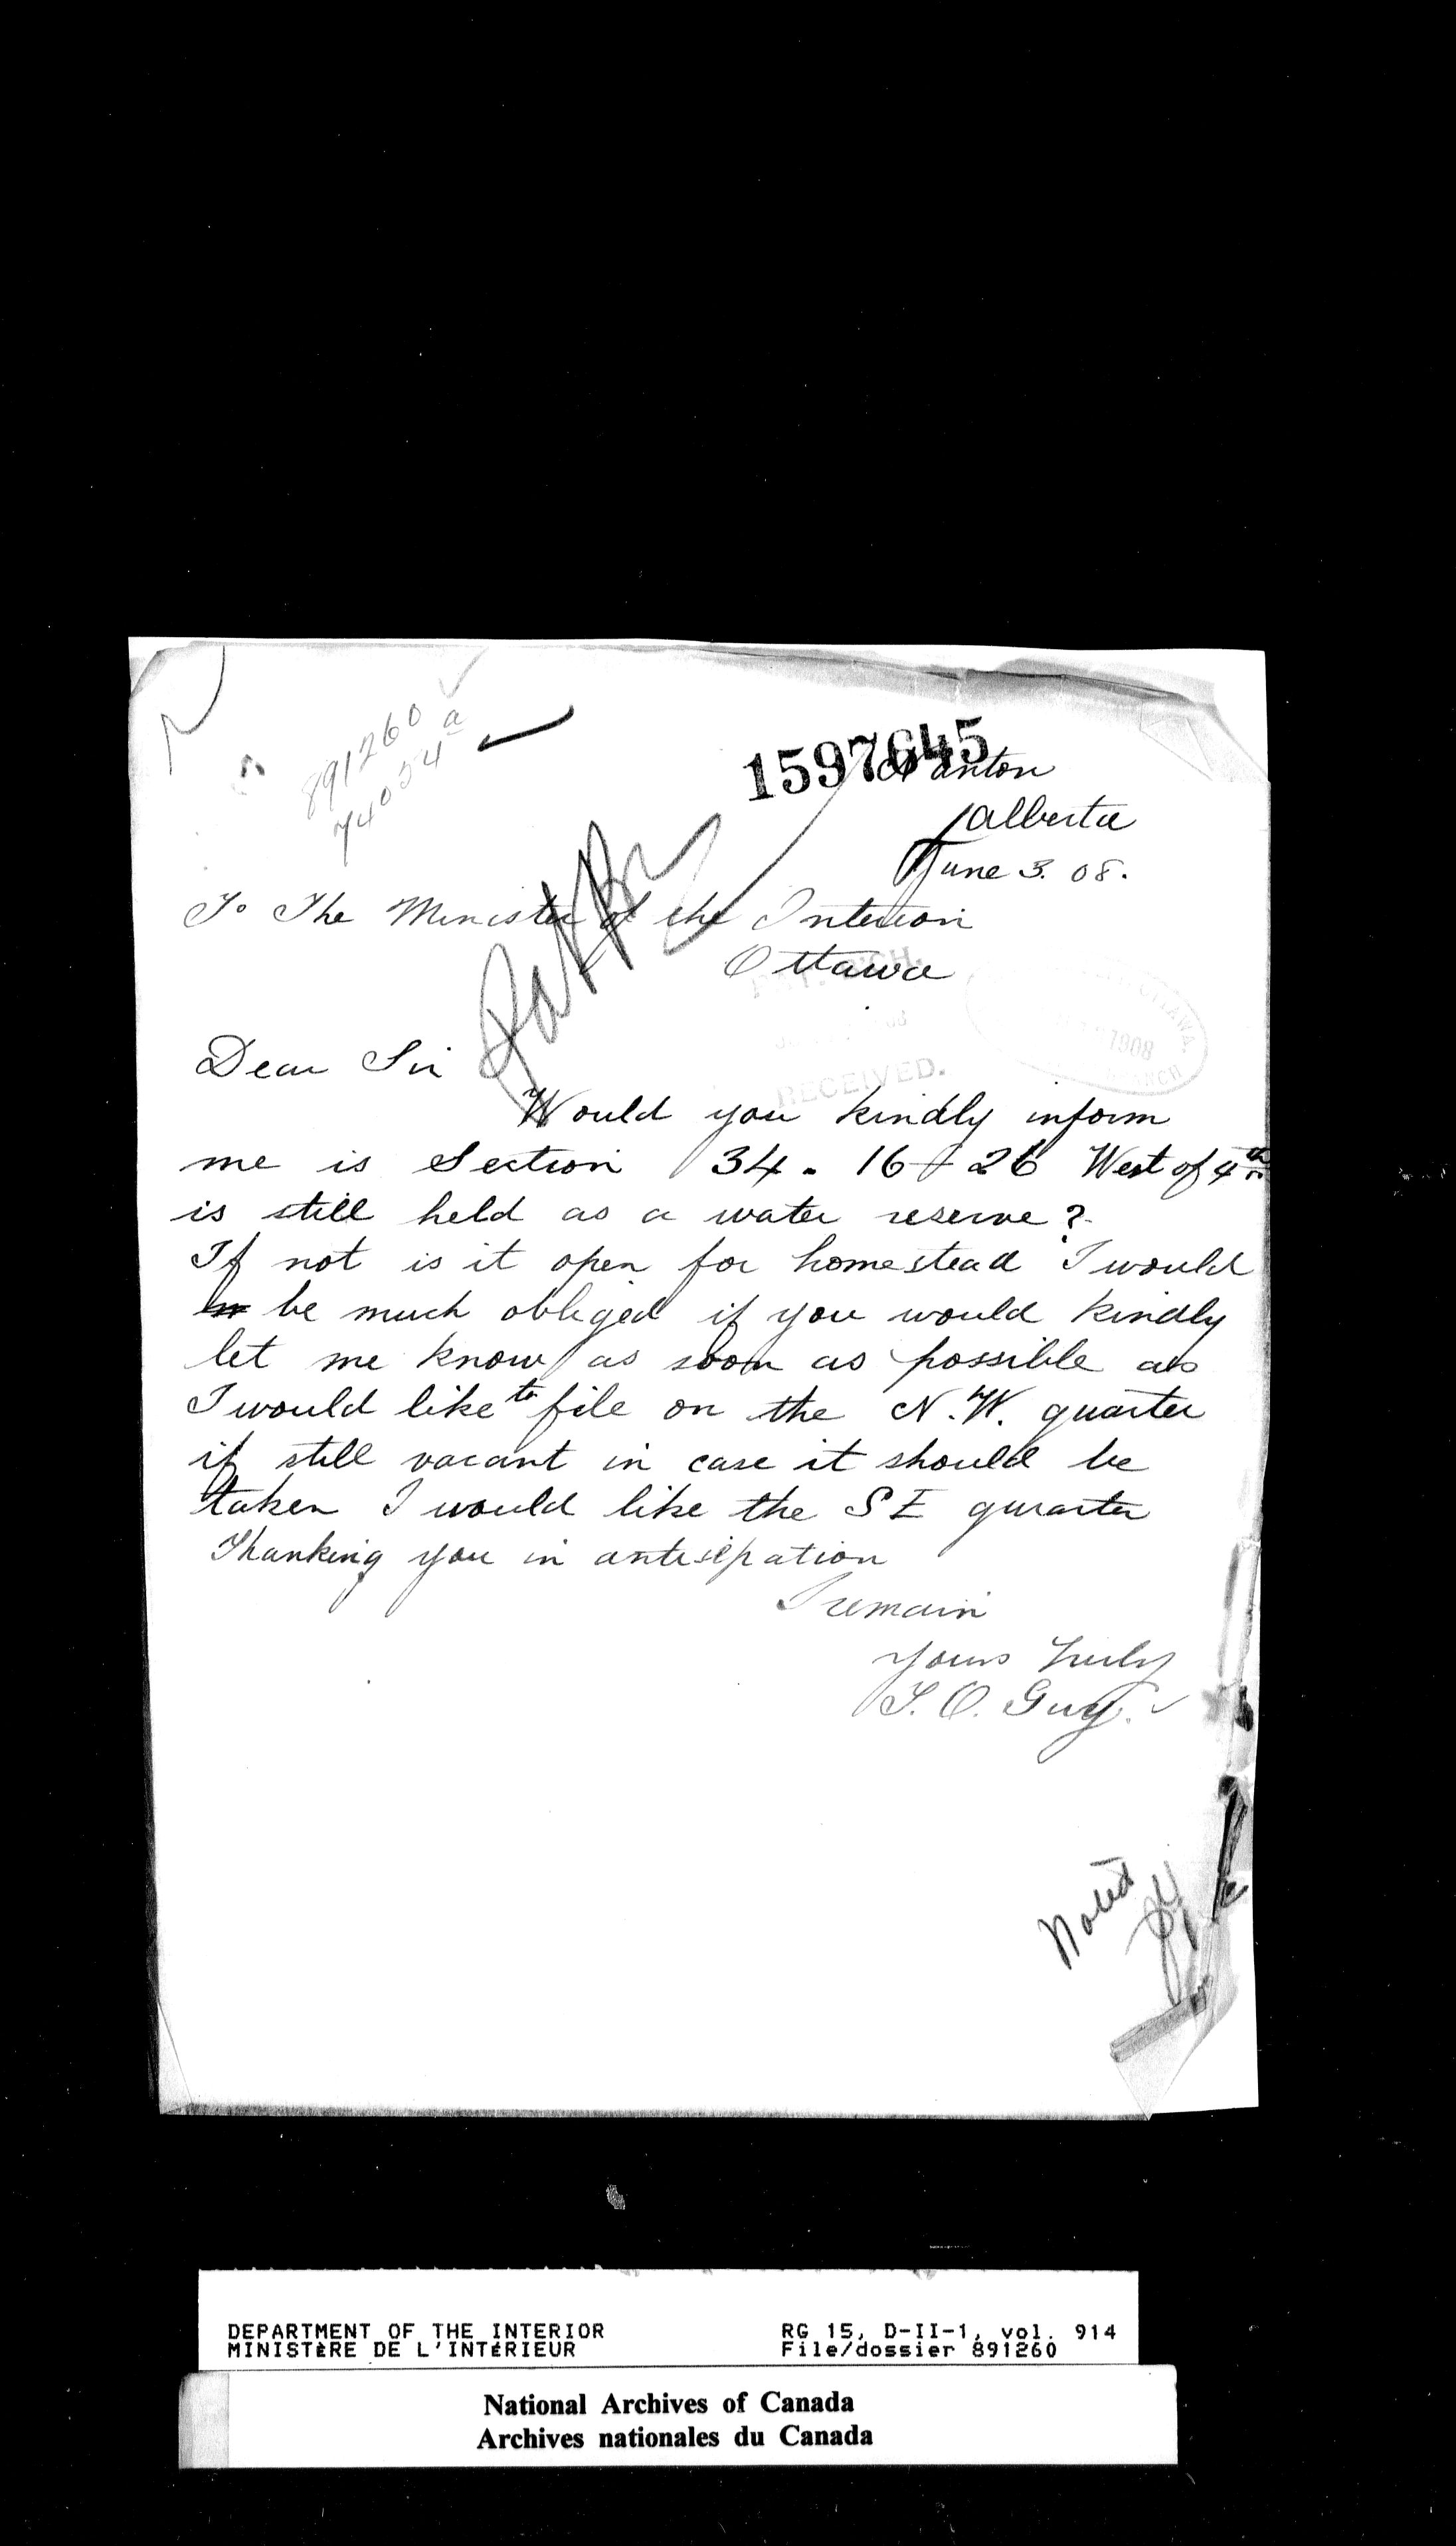 891260
74054a
1597645
Nanton
Alberta
June 3. 08.
To The Minister of the Interior
Ottawa
RECEIVED.
OTTAWA.
1908
BRANCH
Dear Sir
Would you kindly inform
me is Section 34 - 16 - 26 West of 4th
is still held as a water reserve?
If not is it open for homestead I would
be much obliged if you would kindly
let me know as soon as possible as
I would like to file on the N.W. quarter
if still vacant in case it should be
taken I would like the S E quarter
Thanking you in antisipation
I remain
Yours truly
T. O. Guy.
Noted
DEPARTMENT OF THE INTERIOR RG 15, D-II-1, vol. 914
MINISTÈRE DE L'INTÉRIEUR File/dossier 891260
National Archives of Canada
Archives nationales du Canada